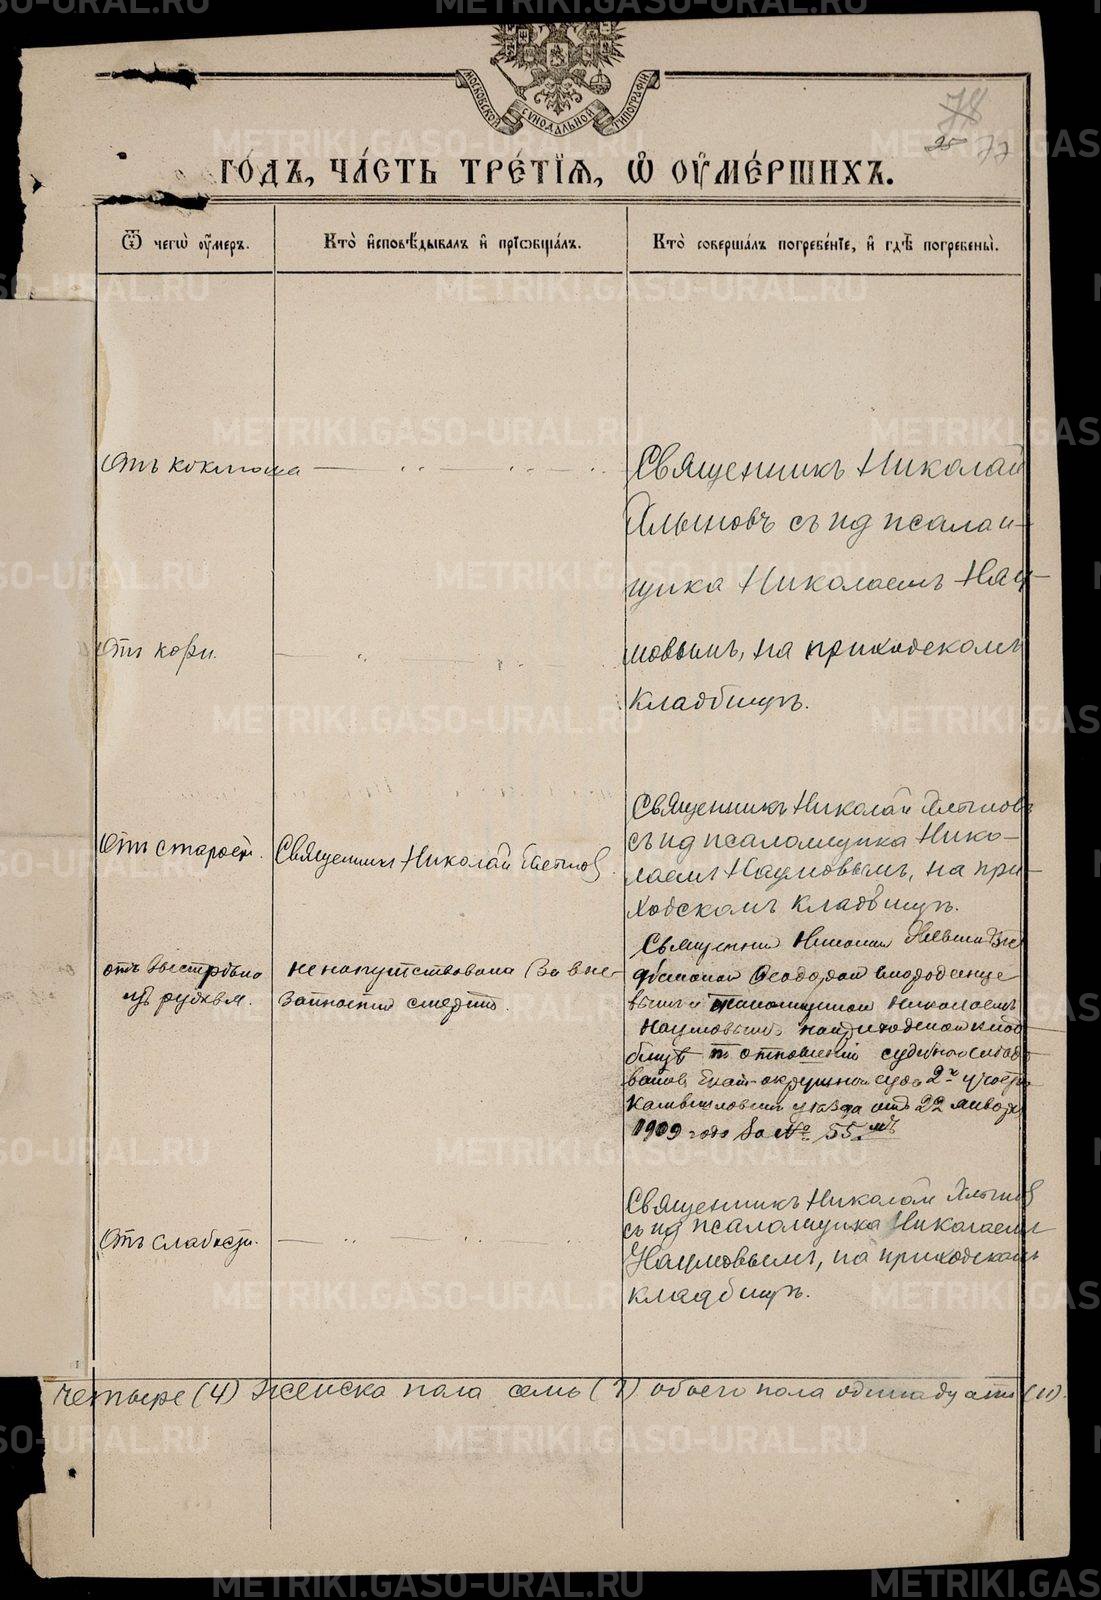 МОСКОВСКОЙ СѴНОДАЛЬНОЙ ТИПОГРАФІИ
78
25 77
ГО́ДЪ, ЧА́СТЬ ТРЕ́ТІЯ, Ѽ ОУ҆МЕ́РШИХЪ.
Ѿ чегѡ̀ оу҆́меръ.
Кто̀ и҆сповѣ́дывалъ и҆ прїѡбща́лъ.
Кто̀ соверша́лъ погребе́нїе, и҆ гдѣ̀ погребены̀.
Отъ коклюша
Священникъ Николай
Хлыновъ съ и д псалом-
щика Николаемъ Нау-
Отъ кори.
мовымъ, на приходскомъ
кладбищѣ.
Отъ старости.
Священникъ Николай
Священникъ Николай Хлыновъ
съ и д псаломщика Нико-
лаемъ Наумовымъ, на при-
ходскомъ кладбищѣ.
отъ выстрѣла
изъ ружья.
не напутствована за вне-
запностію смерти.
Священникъ Николай Хлыновъ
Николаемъ
Наумовымъ на приходскомъ клад-
бищѣ по отношенію судебнаго слѣдо-
вателя Екат. окружнаго суда 2го участка
Камышловскаго уѣзда отъ 22 января
1909 года за № 55мъ
Отъ слабости.
Священникъ Николай Хлыновъ
съ и д псаломщика Николаемъ
Наумовымъ, на приходскомъ
кладбищѣ.
четыре (4) женска пола семь (7) обоего пола одинадцать (11).
METRIKI.GASO-URAL.RU